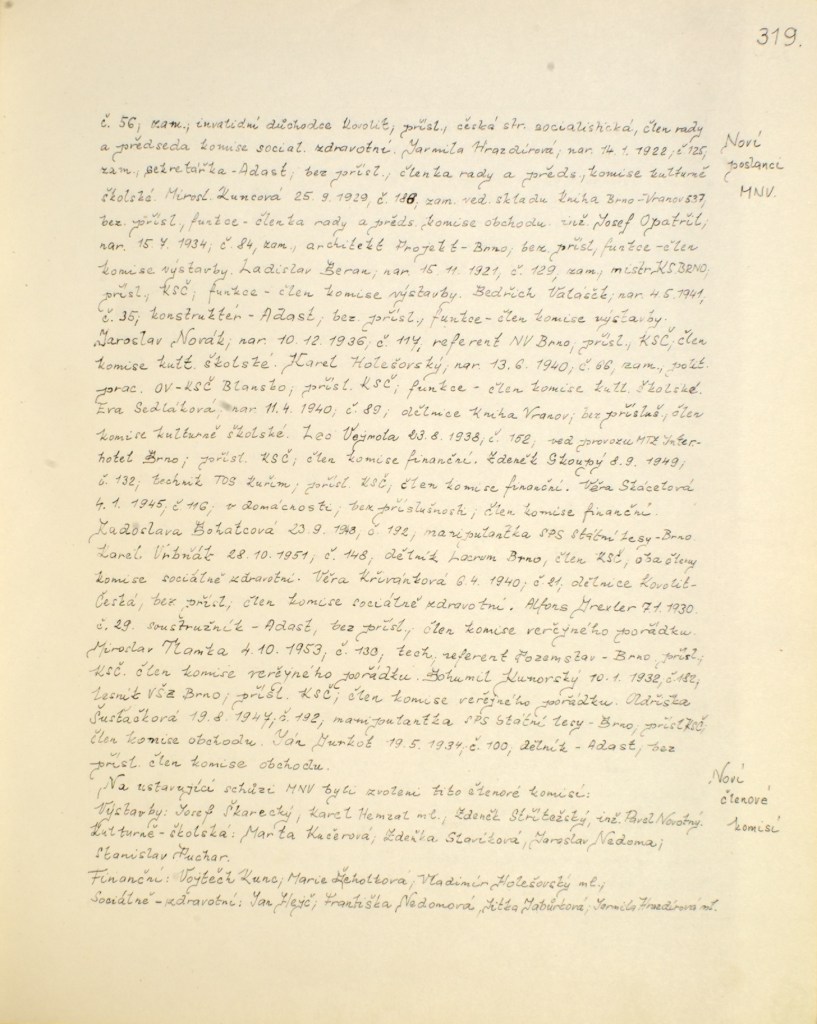 319.
č. 56; zam.; invalidní důchodce Kovolit; přísl., česká str. socialistická, člen rady
a předseda komise social. zdravotní. Jarmila Hrazdírová, nar. 14. 1. 1922; č 125;
zam., sekretářka - Adast, bez přísl., členka rady a předs., komise kulturně
školské. Mirosl. Kuncová 25. 9. 1929, č. 188, zam. ved. skladu kniha Brno-Vranov 537,
bez. přísl., funkce - členka rady a předs. komise obchodu. inž. Josef Opatřil;
nar. 15. 7. 1934; č. 84, zam., architekt Projekt - Brno; bez. přísl., funkce - člen
komise výstavby. Ladislav Beran; nar. 15. 11. 1921, č. 129, zam, mistr. KS. BRNO;
přísl., KSČ; funkce - člen komise výstavby. Bedřich Valášek; nar. 4. 5. 1941,
č. 35; konstruktér - Adast; bez. přísl., funkce - člen komise výstavby.
Jaroslav Novák; nar. 10. 12. 1936; č. 117, referent NV Brno; přísl., KSČ, člen
komise kult. školské. Karel Holešovský; nar. 13. 6. 1940; č. 66, zam., polit.
prac. OV-KSČ Blansko; přísl. KSČ; funkce - člen komise kult. školské.
Eva Sedláková, nar. 11. 4. 1940; č. 89; dělnice Kniha Vranov; bez přísluš., člen
komise kulturně školské. Leo Vejmola 23. 8. 1938, č. 152; ved provozu MTZ Inter-
hotel Brno; přísl. KSČ; člen komise finanční. Zdeněk Skoupý 8. 9. 1949;
č. 132; technik TOS Kuřim; přísl. KSČ, člen komise finanční. Věra Skácelová
4. 1. 1945, č 116; v domácnosti, bez příslušnosti, člen komise finanční.
Radoslava Bohatcová 23. 9. 1943, č. 192, manipulantka SPS státní lesy - Brno.
Karel Vrbňák 28. 10. 1951; č. 148, dělník Lacrum Brno, člen KSČ, oba členy
komise sociálně zdravotní. Věra Křivánková 6. 4. 1940; č 21, dělnice Kovolit-
Česká, bez přísl; člen komise sociálně zdravotní. Alfons Drexler 7. 1. 1930.
č. 29. soustružník - Adast, bez přísl., člen komise veřejného pořádku.
Miroslav Tlamka 4. 10. 1953, č. 130, tech, referent Pozemstav - Brno přísl.;
KSČ. člen komise veřejného pořádku. Bohumil Kunovský 10. 1. 1932, č 182,
lesník VŠZ Brno; přísl. KSČ; člen komise veřejného pořádku. Oldřiška
Šustáčková 19. 8. 1947; č. 192, manipulantka SPS Státní lesy - Brno; přísl, KSČ,
člen komise obchodu. Ján Gurkoš 19. 5. 1934; č. 100, dělník - Adast, bez
přísl. člen komise obchodu.
Na ustavující schůzi MNV byli zvoleni tito členové komisí:
Výstavby: Josef Škarecký, Karel Hemzal ml., Zdeněk Střítežský, inž. Pavel Novotný.
Kulturně - školská: Marta Kučerová; Zdeňka Slavíková, Jaroslav Nedoma;
Stanislav Puchar.
Finanční: Vojtěch Kunc; Marie Žeholková; Vladimír Holešovský ml.;
Sociálně - zdravotní: Jan Hejč; Františka Nedomová, Jitka Jabůrková; Jarmila Hrazdírová ml.
Noví
poslanci
MNV.
Noví
členové
komisí